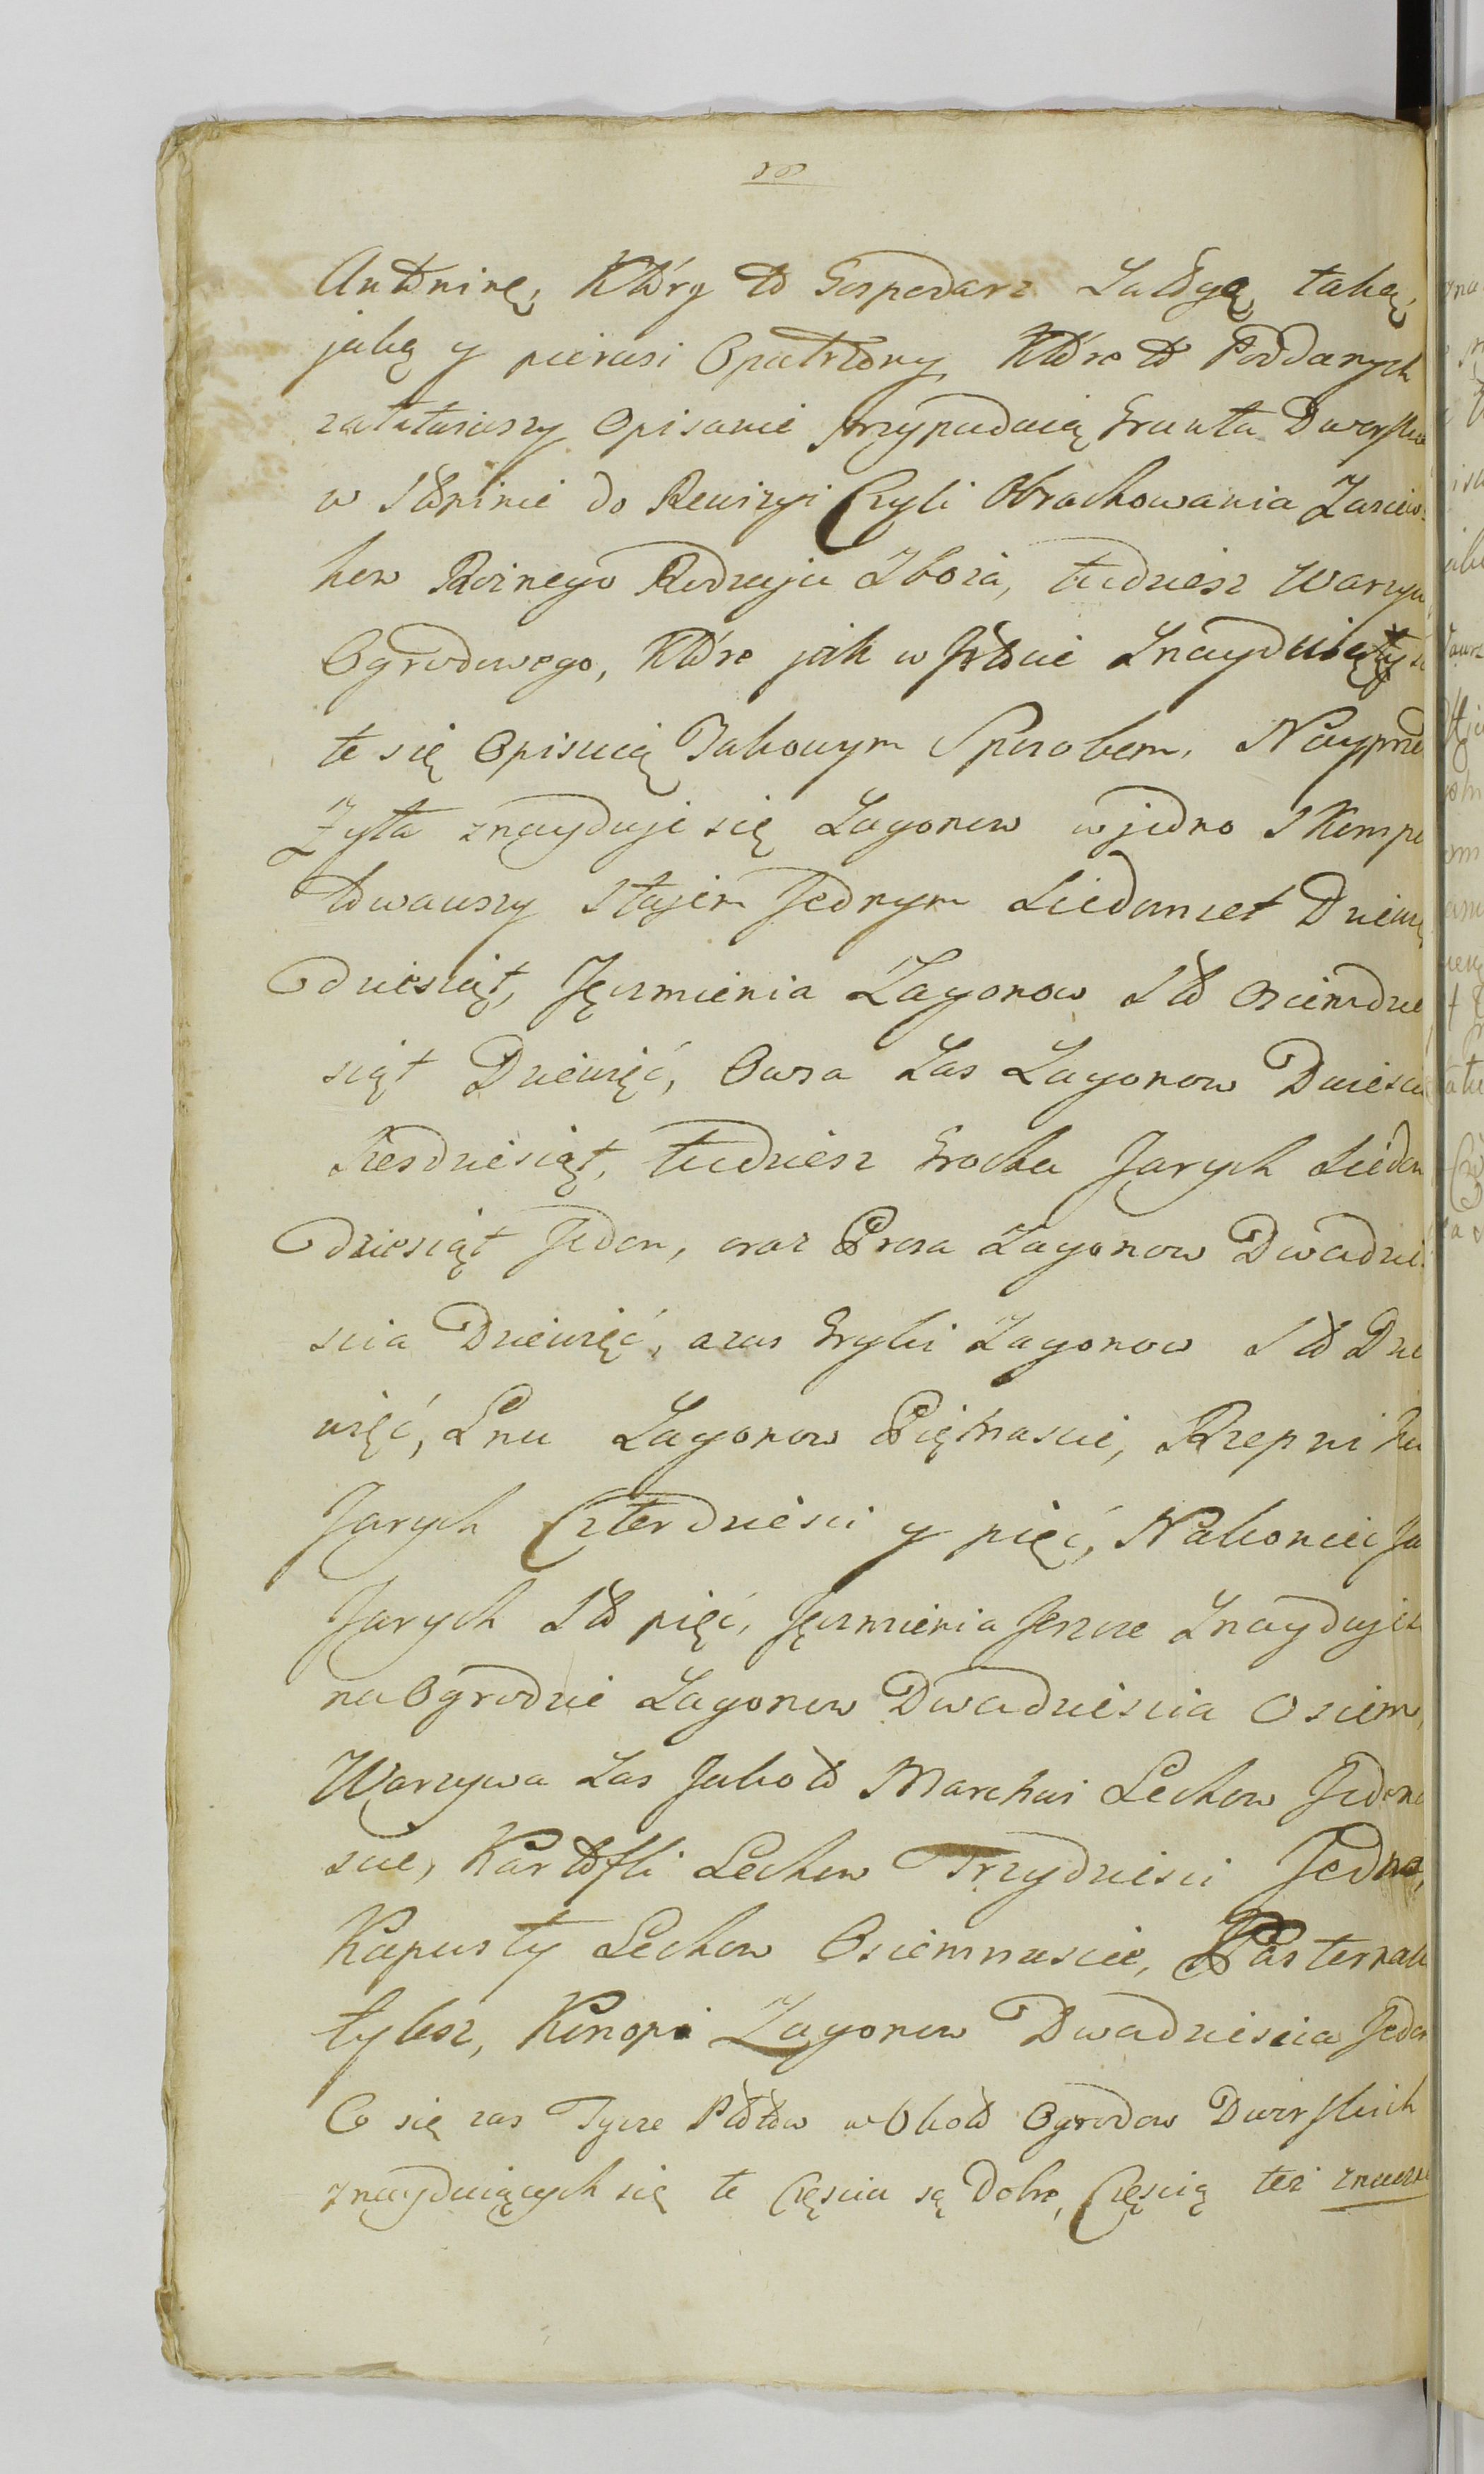 18
Antoninę, Który to Gospodarz Załogą taką,
jaką y pierwsi Opatrzony, Które to Poddanych
zatatwiwszy Opisanie przypadaią Grunta Dworskie
w Słoninie do Rewizyi Czyli Obrachowania Zasiew-
kow Roznego Rodzaju Zboza, tudziesz Warzyw
Ogrodowego, Które jak w Istocie Znayduią
te się Opisuią Jakowym Sposobem. Nayprzod
Zyta znayduje się Zagonow w jedno Skompu
towawszy Stajem Jednym Siedmset Dziewię
dziesiąt, Jęczmienia Zagonow Sto Osiemdzie
siąt Dziewięć, Owsa Zas Zagonow Dwiescie
Szesdziesiąt, tudziesz Grochu Jarych Siedm
dziesiąt Jeden, oraz Prosa Zagonow Dwadzie
scia Dziewięć, a zas Gryki Zagonow Sto Dzie
więć, Lnu Zagonow Piętnascie, Rzepniku
Jarych Czterdziesci y pięć, Nakoniec
Jarych Sto pięć, Jęczmienia Jeszcze Znayduje
na Ogrodzie Zagonow Dwadziescia Osiem,
Warzywa Zas Jako to Marchwi Lechow Jedena
scie, Kartofli Lechow Trzydziesci Jedna,
Kapusty Lechow Osiemnascie, Pasternaku
tylesz, Konopi Zagonow Dwadziescia Jeden
Co się zas Tycze Płotow w Około Ogrodow Dworskich
znayduiących się te Częscia są Dobre, Częscią też znisz